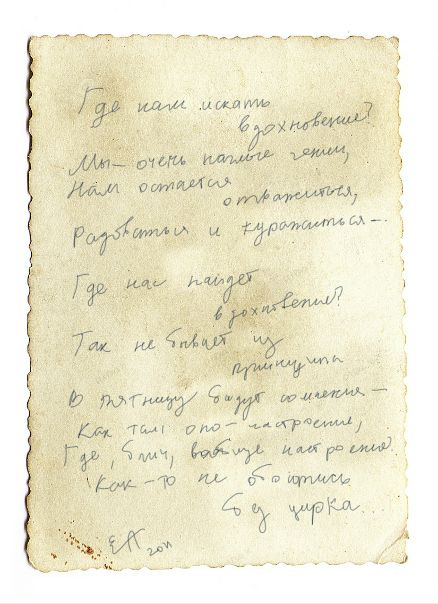 Где нам искать
вдохновение?
Мы — очень наглые гении,
Нам остается
отважиться,
Радоваться и куражиться —.
Где нас найдет
вдохновение?
Так не бывает из
принципа
В пятницу будут сомнения —
Как там оно — настроение,
Где, блин, вообще настроение?
Как-то не обошлись
без цирка...
ЕА 2011